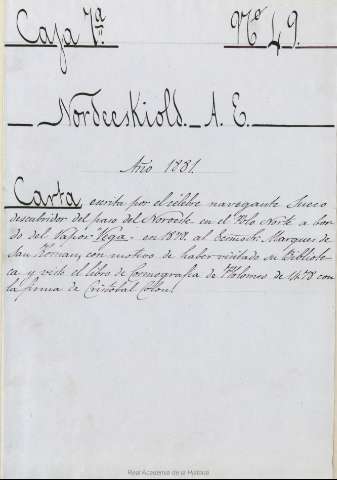 Caja 7ª Nº 49.
Nordeeskiold. A. E.
Año 1881.
Carta escrita por el célebre navegante Sueco
descubridor del paso del Noroeste en el Polo Norte a bor-
do del Vapor Vega en 1878 al Marques de
San Roman, con motivo de haber visitado su Bibliote-
ca y visto el libro de Cosmografia de Ptolomeo de 1478 con
la firma de Cristobal Colon.
Real Academia de la Historia